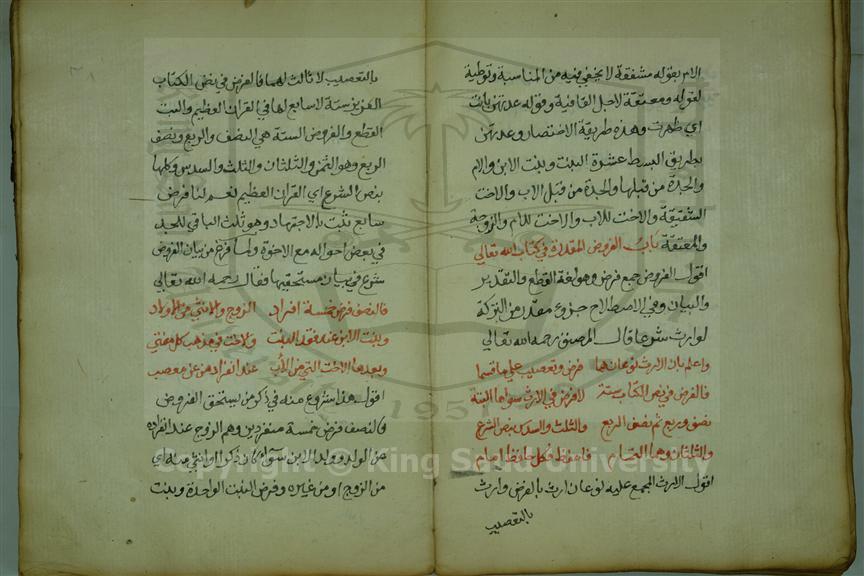 الام بقوله مشفقة لا يخفى فيه من المناسبة وتوطية
لقوله ومعتقة لاجل القافية وقوله عدتهن بانت
اي ظهرت وهذه طريقة الاختصار وعدتهن
بطريق البسط عشرة البنت وبنت الابن والام
والجدة من قبلها والجدة من قبل الاب والاخت
الشقيقة والاخت للاب والاخت للام والزوجة
والمعتقة باب الفروض المقدرة في كتاب الله تعالى
اقول الفروض جمع فرض وهو لغة القطع والتقدير
والبيان وفي الاصطلاح جزء مقدر من التركة
لوارث شرعا قال المصنف رحمه الله تعالى
واعلم بان الارث نوعان هما فرض وتعصيب على ما قسما
فالفرض في نص الكتاب ستة لا فرض في الارث سواها البتة
نصف وربع ثم نصف الربع والثلث والسدس بنص الشرع
والثلثان وهما التمام فاحفظ فكل حافظ امام
اقول الارث المجمع عليه نوعان ارث بالفرض وارث
بالتعصيب
بالتعصيب لا ثالث لهما فالفرض في نص الكتاب
العزيز ستة لا سابع لها في القران العظيم والبت
القطع والفروض الستة هي النصف والربع ونصف
الربع وهو الثمن والثلثان والثلث والسدس وكلها
بنص الشرع اي القران العظيم نعم لنا فرض
سابع ثبت بالاجتهاد وهو ثلث الباقي للجد
في بعض احواله مع الاخوة ولما فرغ من بيان الفروض
شرع في بيان مستحقيها فقال رحمه الله تعالى
فالنصف فرض خمسة افراد الزوج والانثى من الاولاد
وبنت الابن عند فقد البنت والاخت في مذهب كل مفتي
وبعدها الاخت التي من الاب عند انفرادهن عن معصب
اقول هذا شروع منه في ذكر من يستحق الفروض
فالنصف فرض خمسة منفردين وهم الزوج عند انفراده
عن الولد وولد الابن سواء كان ذكرا او انثى منه اي
من الزوج او من غيره وفرض البنت الواحدة وبنت
Copyright © King Saud University
1957